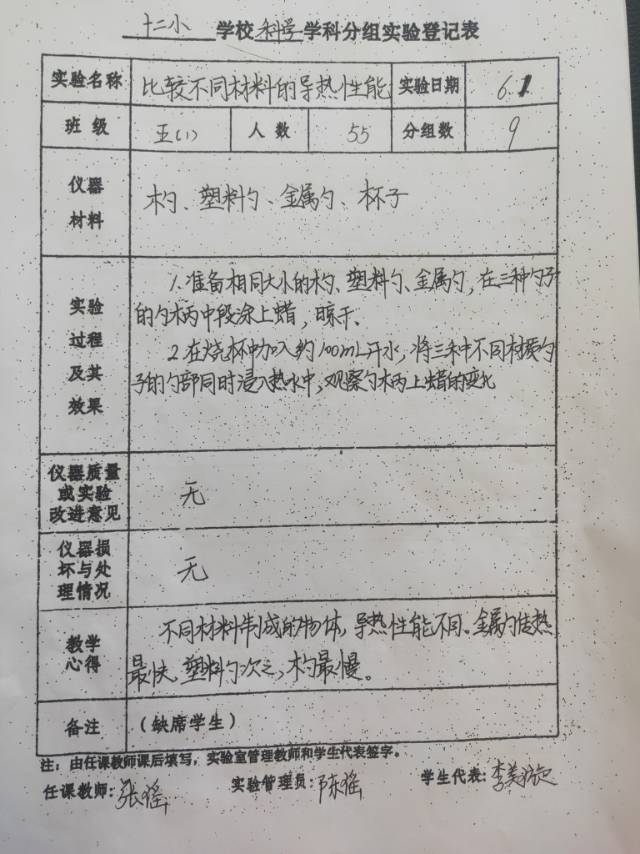 十二小 学校 科学 学科分组实验登记表
实验名称 比较不同材料的导热性能 实验日期 6.1
班级 五(1) 人数 55 分组数 9
仪器材料 木勺、塑料勺、金属勺、杯子
实验过程及其效果
1.准备相同大小的木勺、塑料勺、金属勺,在三种勺子
的勺柄中段涂上蜡,晾干、
2.在烧杯中加入约100mL开水,将三种不同材质勺
子的勺部同时浸入热水中,观察勺柄上蜡的变化
仪器质量或实验改进意见 无
仪器损坏与处理情况 无
教学心得
不同材料制成的物体,导热性能不同、金属勺传热
最快,塑料勺次之,木勺最慢。
备注 (缺席学生)
注:由任课教师课后填写,实验室管理教师和学生代表签字。
任课教师:张瑶 实验管理员:陈瑶 学生代表:李美